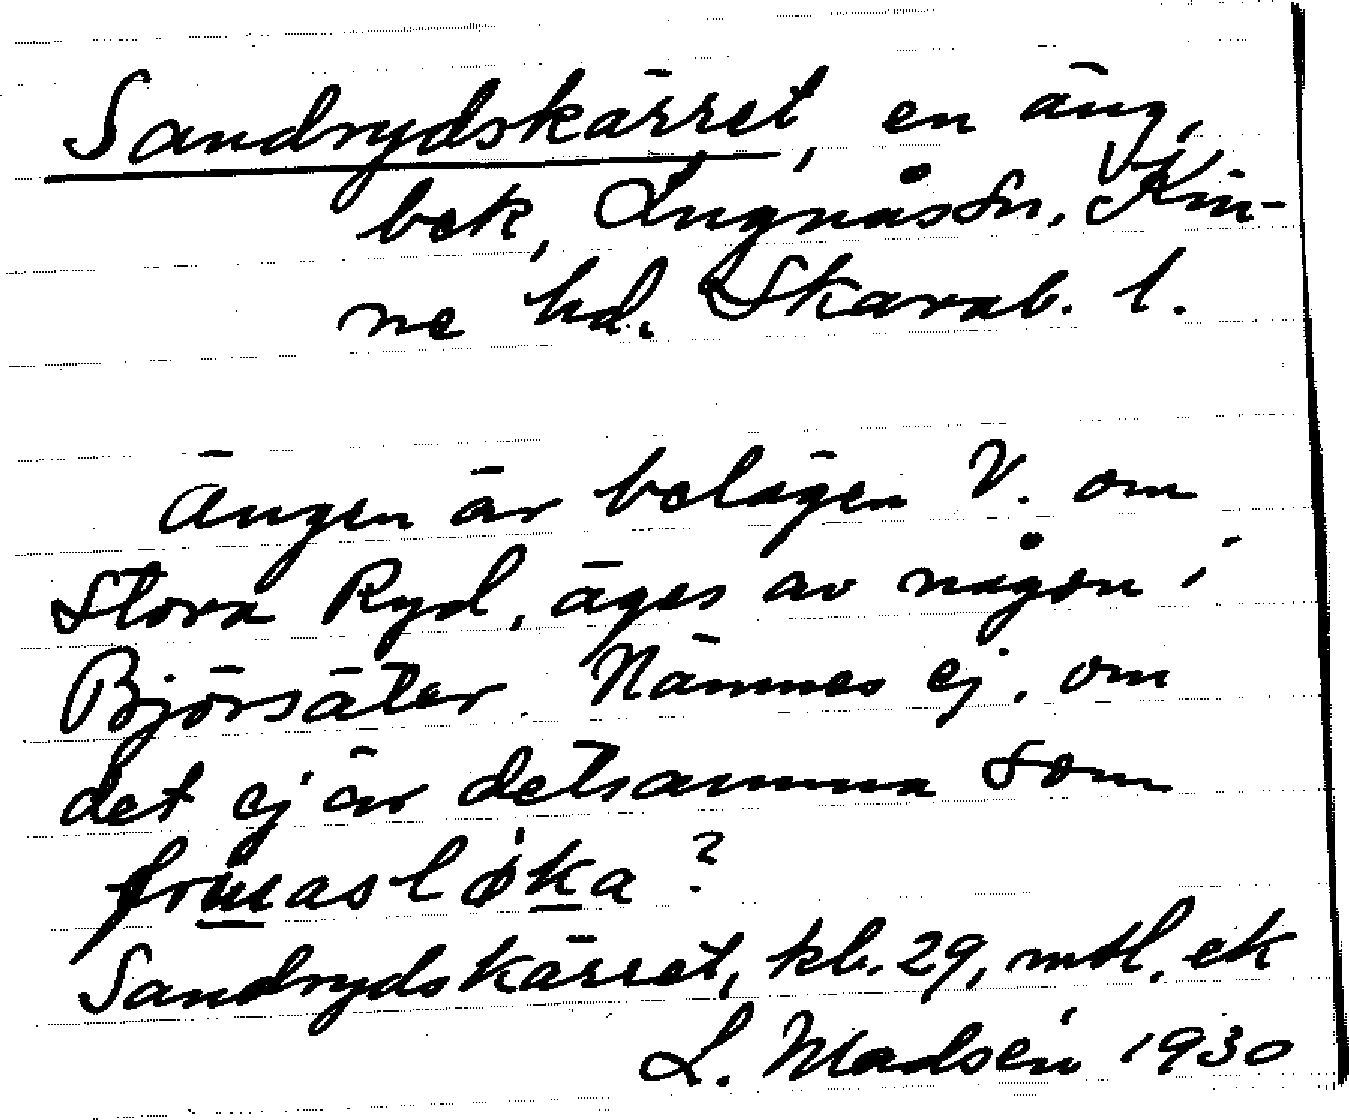 Sandrydskärret, en äng,
bek, Lugnås sn, Kin-
ne hd. Skarab. l.
Ängen är belägen V. om
Stora Ryd, äges av någon i
Björsäter. Nämnes ej, om
det ej är detsamma som
?
Sandrydskärret, kb. 29, mtl. ek
L. Madsén 1930